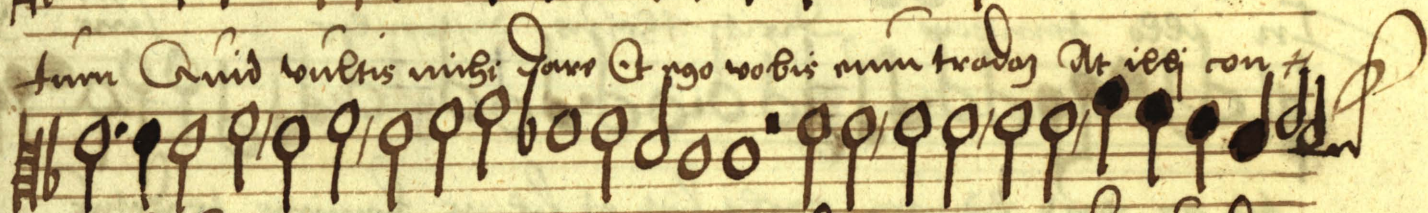 tum Quid vultis mihi dare Et ego vobis eum tradaʒ At illi con